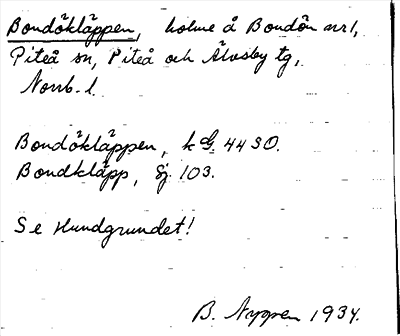 Bondökläppen, holme å Bondön nr 1,
Piteå sn, Piteå och Älvsby tg,
Norrb. l.
Bondökläppen, k G. 44 SO.
Bondkläpp, Sj. 103.
Se Hundgrundet!
B. Nygren 1934.